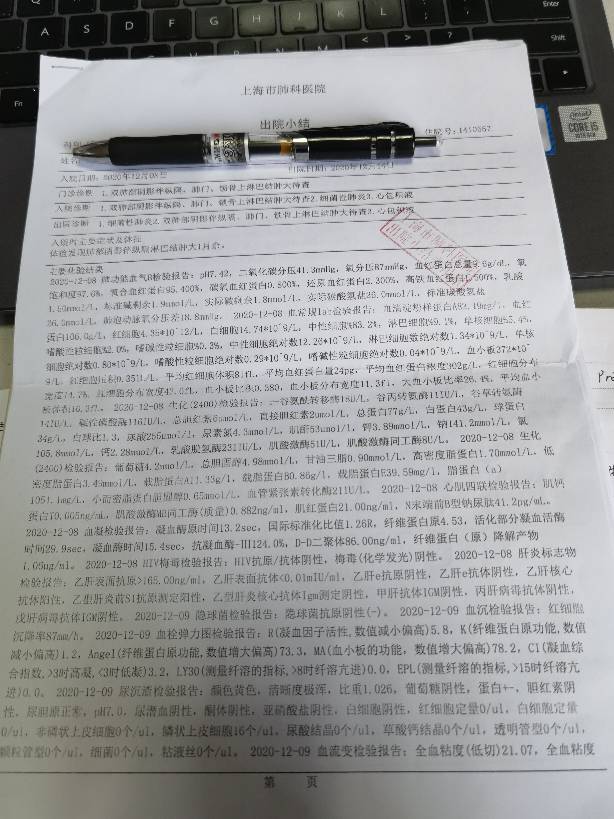 上海市肺科医院
出院小结
住院号:1410667
姓名
入院日期: 2020年12月08日
出院日期: 2020年12月14日
门诊诊断 1.双肺部阴影伴纵隔、肺门、锁骨上淋巴结肿大待查
入院诊断 1.双肺部阴影伴纵隔、肺门、锁骨上淋巴结肿大待查2.细菌性肺炎3.心包积液
出院诊断 1.细菌性肺炎2.双肺部阴影伴纵隔、肺门、锁骨上淋巴结肿大待查3.心包积液
入院时主要症状及体征
体检发现肺部阴影伴纵隔淋巴结肿大1月余。
主要化验结果
2020-12-08 微功能血气B检验报告: pH7.42, 二氧化碳分压41.3mmHg, 氧分压87mmHg, 血红蛋白总量9.6g/dL, 氧
饱和度97.6%, 氧合血红蛋白95.400%, 碳氧血红蛋白0.800%, 还原血红蛋白2.300%, 高铁血红蛋白1.500%, 乳酸
1.50mmol/L, 标准碱剩余1.9mmol/L, 实际碱剩余1.8mmol/L, 实际碳酸氢盐26.0mmol/L, 标准碳酸氢盐
26.0mmol/L, 肺泡动脉氧分压差18.8mmHg。 2020-12-08 血常规 检验报告: 血清淀粉样蛋白A 血红
蛋白106.0g/L, 红细胞4.35*10^12/L, 白细胞14.74*10^9/L, 中性粒细胞83.2%, 淋巴细胞9.1%, 单核细胞5.4%,
嗜酸性粒细胞2.0%, 嗜碱性粒细胞0.3%, 中性细胞绝对数12.26*10^9/L, 淋巴细胞绝对数1.34*10^9/L, 单核
细胞绝对数0.80*10^9/L, 嗜酸性粒细胞绝对数0.29*10^9/L, 嗜碱性粒细胞绝对数0.04*10^9/L, 血小板372*10^
9/L, 红细胞压积0.351L/L, 平均红细胞体积81fL, 平均血红蛋白量24pg, 平均血红蛋白浓度302g/L, 红细胞分布
宽度 红细胞分布宽度43.0fL, 血小板压积0.380, 血小板分布宽度11.3fL, 大血小板比率26.4%, 平均血小
板体积10.3fL。 2020-12-08 生化(2400)检验报告: 谷氨酰转移酶18U/L, 谷丙转氨酶11U/L, 谷草转氨酶
14U/L, 碱性磷酸酶116IU/L, 总胆红素6umol/L, 直接胆红素2umol/L, 总蛋白77g/L, 白蛋白43g/L, 球蛋白
34g/L, 白球比1.3, 尿酸256umol/L, 尿素氮4.3mmol/L, 肌酐53umol/L, 钾3.89mmol/L, 钠141.2mmol/L, 氯
105.8mmol/L, 钙2.28mmol/L, 乳酸脱氢酶231IU/L, 肌酸激酶51U/L, 肌酸激酶同工酶8U/L。 2020-12-08 生化
(2400)检验报告: 葡萄糖4.2mmol/L, 总胆固醇4.98mmol/L, 甘油三脂0.90mmol/L, 高密度脂蛋白1.70mmol/L, 低
密度脂蛋白3.49mmol/L, 载脂蛋白A11.33g/L, 载脂蛋白B0.86g/L, 载脂蛋白E39.59mg/L, 脂蛋白(a)
1051.1mg/L, 小而密脂蛋白胆固醇0.65mmol/L, 血管紧张素转化酶21IU/L。 2020-12-08 心肌四联检验报告: 肌钙
蛋白T0.005ng/mL, 肌酸激酶MB同工酶(质量)0.882ng/ml, 肌红蛋白21.00ng/ml, N末端前B型钠尿肽41.2pg/mL。
2020-12-08 血凝检验报告: 凝血酶原时间13.2sec, 国际标准化比值1.26R, 纤维蛋白原4.53, 活化部分凝血活酶
时间29.9sec, 凝血酶时间15.4sec, 抗凝血酶-III124.0%, D-D二聚体86.00ng/ml, 纤维蛋白(原)降解产物
1.09ug/ml。 2020-12-08 HIV梅毒检验报告: HIV抗原/抗体阴性, 梅毒(化学发光)阴性。 2020-12-08 肝炎标志物
检验报告: 乙肝表面抗原>165.00ng/ml, 乙肝表面抗体<0.01mIU/ml, 乙肝e抗原阴性, 乙肝e抗体阴性, 乙肝核心
抗体阳性, 乙型肝炎前S1抗原测定阳性, 乙型肝炎核心抗体Igm测定阴性, 甲肝抗体IGM阴性, 丙肝病毒抗体阴性,
戊肝病毒抗体IGM阴性。 2020-12-09 隐球菌检验报告: 隐球菌抗原阴性(-)。 2020-12-09 血沉检验报告: 红细胞
沉降率87mm/h。 2020-12-09 血栓弹力图检验报告: R(凝血因子活性,数值减小偏高)5.8, K(纤维蛋白原功能,数值
减小偏高)1.2, Angel(纤维蛋白原功能,数值增大偏高)73.3, MA(血小板的功能, 数值增大偏高)78.2, CI(凝血综
合指数,>3时高凝,<3时低凝)3.2, LY30(测量纤溶的指标,>8时纤溶亢进)0.0, EPL(测量纤溶的指标,>15时纤溶亢
进)0.0。 2020-12-09 尿沉渣检验报告: 颜色黄色, 清晰度极浑, 比重1.026, 葡萄糖阴性, 蛋白+-, 胆红素阴
性, 尿胆原正常, pH7.0, 尿潜血阴性, 酮体阴性, 亚硝酸盐阴性, 白细胞阴性, 红细胞定量0/ul, 白细胞定量
0/ul, 非鳞状上皮细胞0个/ul, 鳞状上皮细胞16个/ul, 尿酸结晶0个/ul, 草酸钙结晶0个/ul, 透明管型0个/ul,
颗粒管型0个/ul, 细菌0个/ul, 粘液丝0个/ul。 2020-12-09 血流变检验报告: 全血粘度(低切)21.07, 全血粘度
第 页
intel
CORE i5
Enter
Shift
Fn